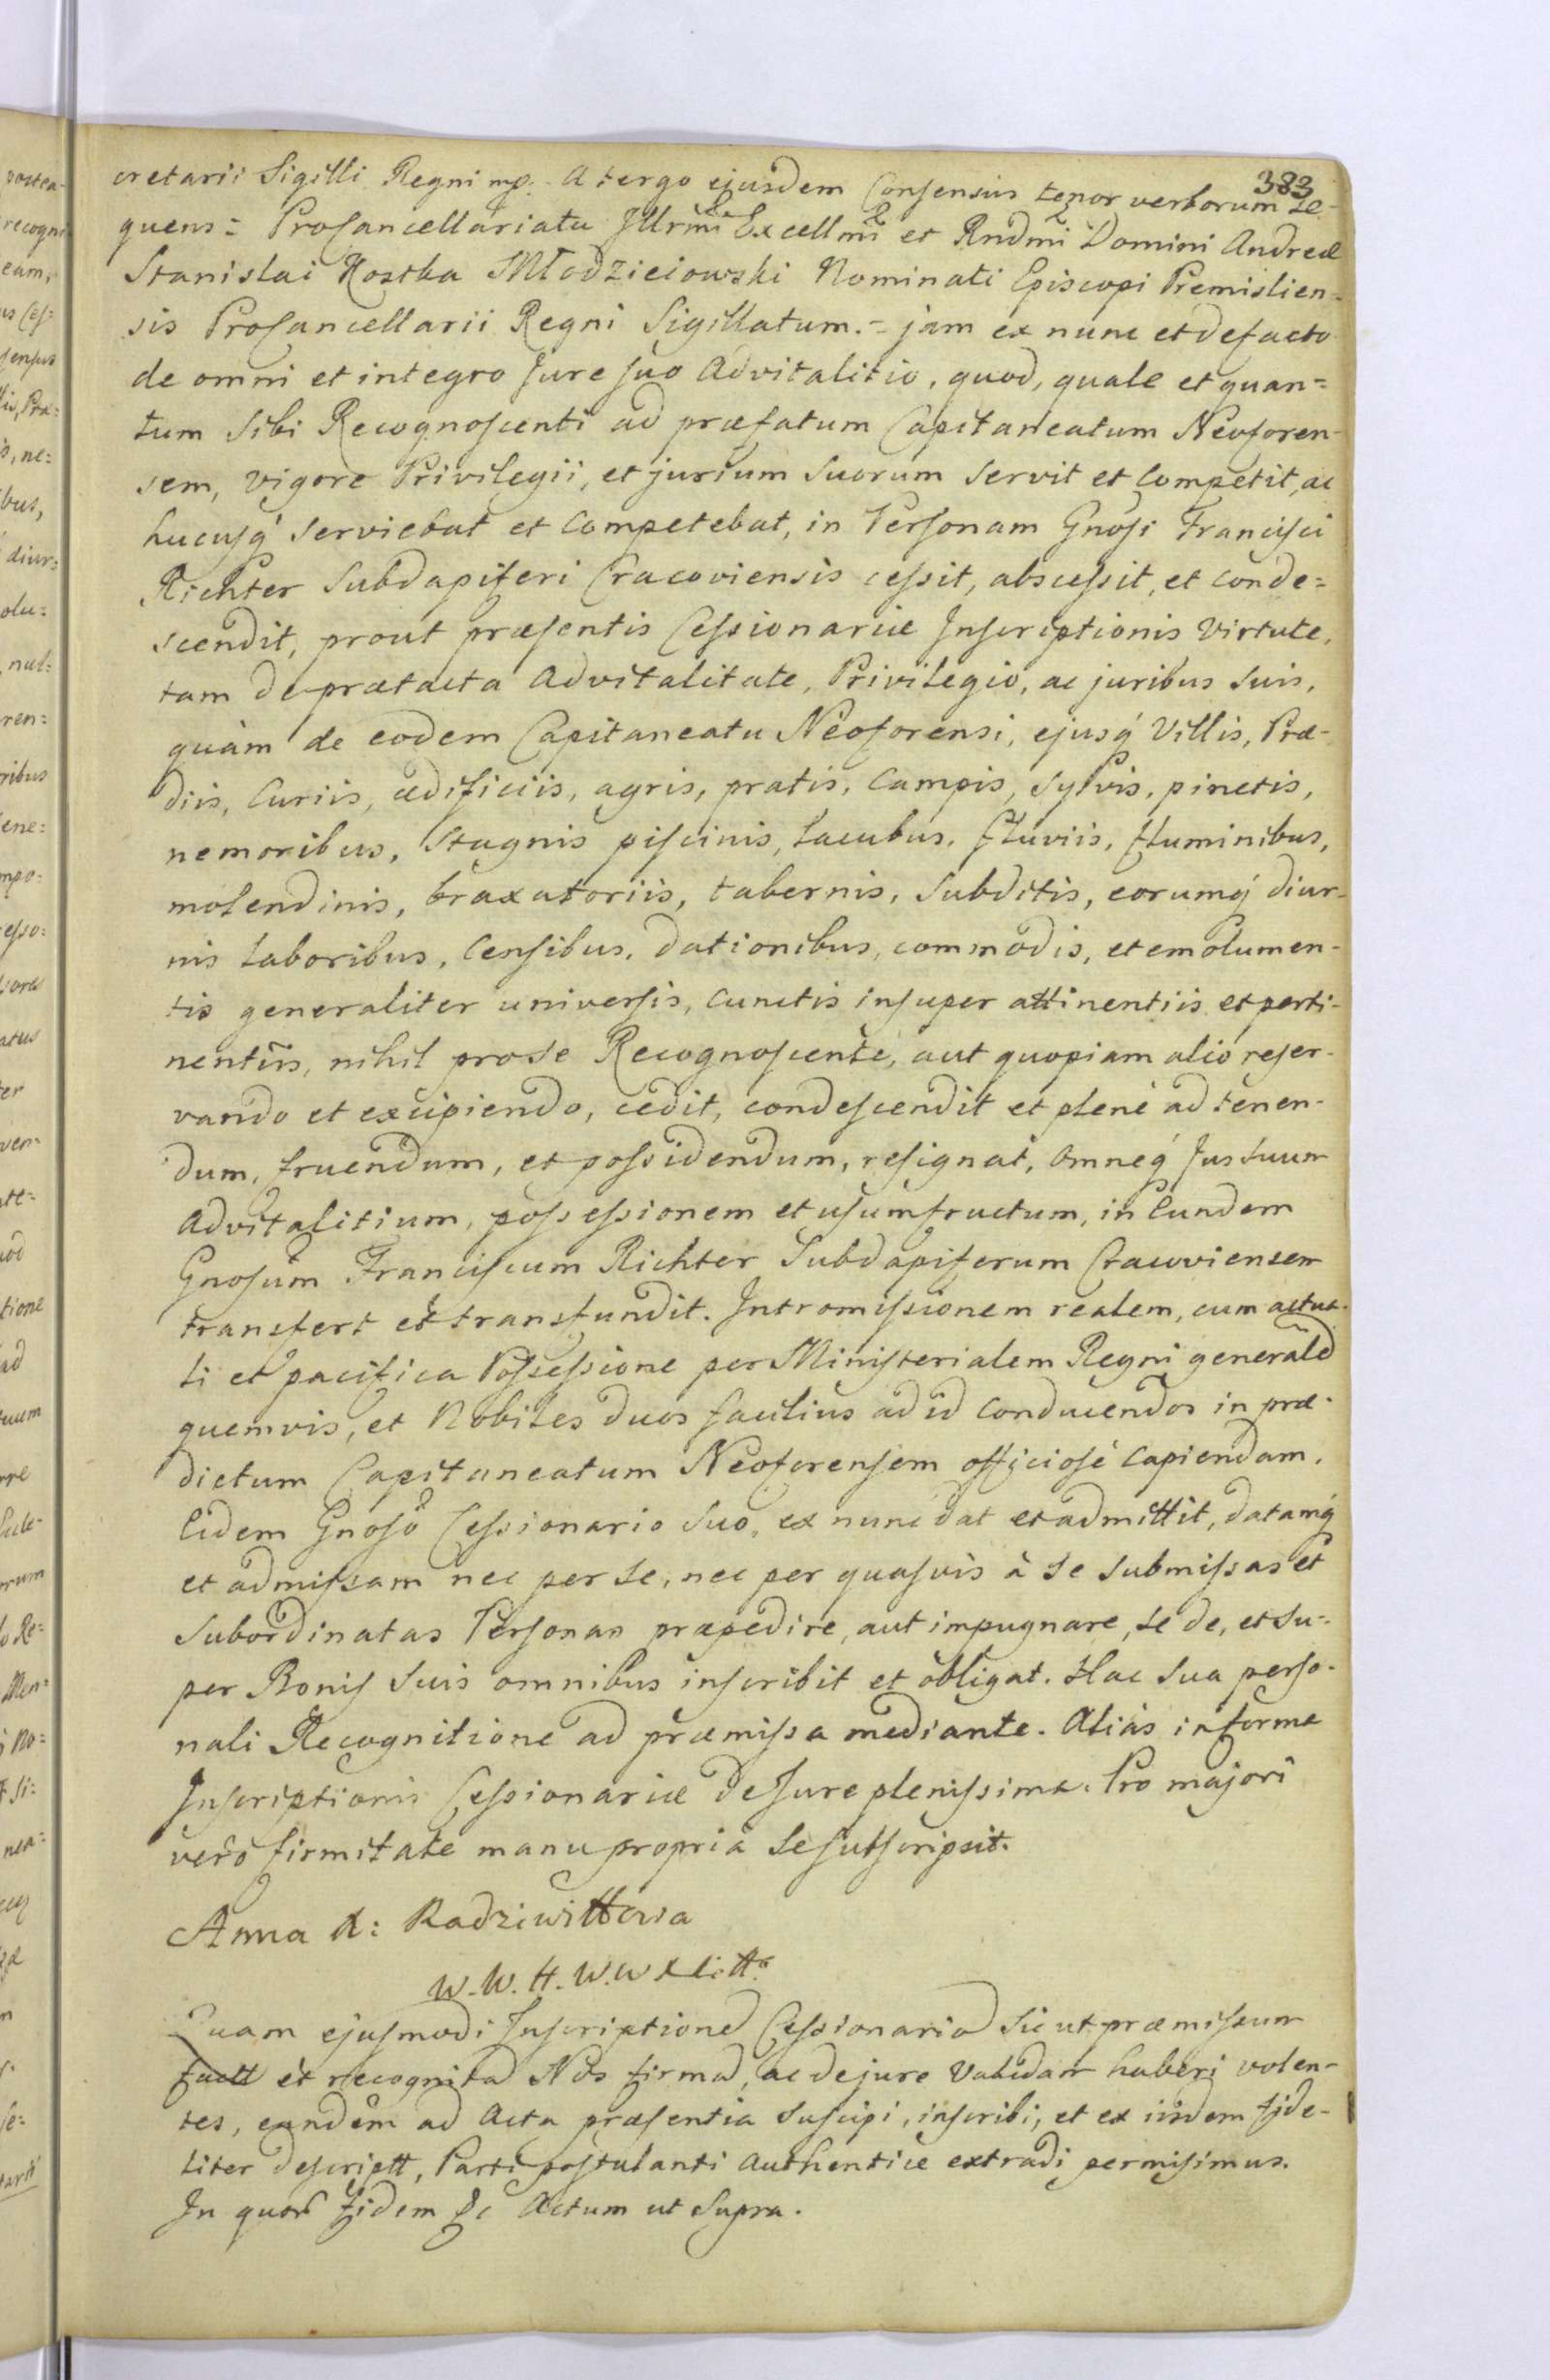 383
cretarii Sigilli Regni mp. A tergo ejusdem Consensus tenor verborum se-
quens = ProCancellariatu Illrmi Excellmi et Rndmi Domini Andreæ
Stanislai Kostka Młodzieiowski Nominati Episcopi Premislien-
sis ProCancellarii Regni Sigillatum. = jam ex nunc et de facto
de omni et integro Jure suo Advitalitio, quod, quale et quan=
tum sibi Recognoscenti ad præfatum Capitaneatum Neoforen-
sem, vigore Privilegii, et jurium suorum servit et Competit, ac
hucusq́ serviebat et Competebat, in Personam Gnosi Francisci
Richter Subdapiferi Cracoviensis cessit, abscessit, et conde=
scendit, prout præsentis Cessionariæ Inscriptionis virtute,
tam de prætacta Advitalitate, Privilegio, ac juribus suis,
quàm de eodem Capitaneatu Neoforensi, ejusq́ Villis, Præ-
diis, Curiis, ædificiis, agris, pratis, Campis, Sylvis, pinetis,
nemoribus, Stagnis piscinis, lacubus, fluviis, fluminibus,
molendinis, braxatoriis, tabernis, Subditis, eorumq́ diur-
nis laboribus, Censibus, dationibus, commodis, et emolumen-
tis generaliter universis, Cunctis insuper attinentiis et perti-
nentiis, nihil pro se Recognoscente, aut quopiam alio reser-
vando et excipiendo, cedit, condescendit et plenè ad tenen-
dum, fruendum, et possidendum, resignat, Omneq́ Jus suum
Advitalitium, possessionem et usumfructum, in Eundem
Gnosum Franciscum Richter Subdapiferum Cracoviensem
transfert et transfundit. Intromissionem realem, cum actua-
li et pacifica Possessione per Ministerialem Regni generalē
quemvis, et Nobiles duos facilius ad id Conducendos in præ-
dictum Capitaneatum Neoforensem officiosè Capiendam,
Eidem Gnoso Cessionario suo, ex nunc dat et admittit, datamq́
et admissam nec per se, nec per quasvis à se submissas et
Subordinatas Personas præpedire, aut impugnare, se de, et su-
per Bonis suis omnibus inscribit et obligat. Hac sua perso-
nali Recognitione ad præmissa mediante. Aliàs in forma
Inscriptionis Cessionariæ de Jure plenissima. Pro majori
verò firmitate manu propria se subscripsit.
Anna X: Radziwiłłowa
W. W. H. W. W X Litt.
Quam ejusmodi Inscriptionē Cessionariā sicut præmissum
factā et recognitā Nos firmā, ac de jure validam haberi volen-
tes, eandem ad Acta præsentia suscipi, inscribi, et ex iisdem fide-
liter descriptā, Parti postulanti authenticè extradi permisimus.
In quorū fidem &c Actum ut supra.